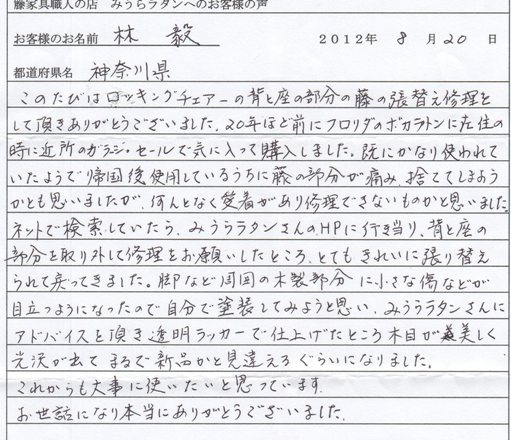 藤家具職人の店　みうらラタンへのお客様の声
お客様のお名前　林　毅　2012年 8 月 20 日
都道府県名　神奈川県
このたびはロッキングチェアーの背と座の部分の藤の張替え修理を
して頂きありがとうございました。20年ほど前にフロリダのボカラトンに在住の
時に近所のガラジ・セールで気に入って購入しました。既にかなり使われて
いたようで帰国後使用しているうちに藤の部分が痛み、捨ててしまおう
かとも思いましたが、何んとなく愛着があり修理できないものかと思いました。
ネットで検索していたら、みうらラタンさんのHPに行き当り、背と座の
部分を取り外して修理をお願いしたところ、とてもきれいに張り替え
られて戻ってきました。脚など周囲の木製部分に小さな傷などが
目立つようになったので自分で塗装してみようと思い、みうらラタンさんに
アドバイスを頂き透明ラッカーで仕上げたところ木目が美しく
光沢が出てまるで新品かと見違えるぐらいになりました。
これからも大事に使いたいと思っています。
お世話になり本当にありがとうございました。